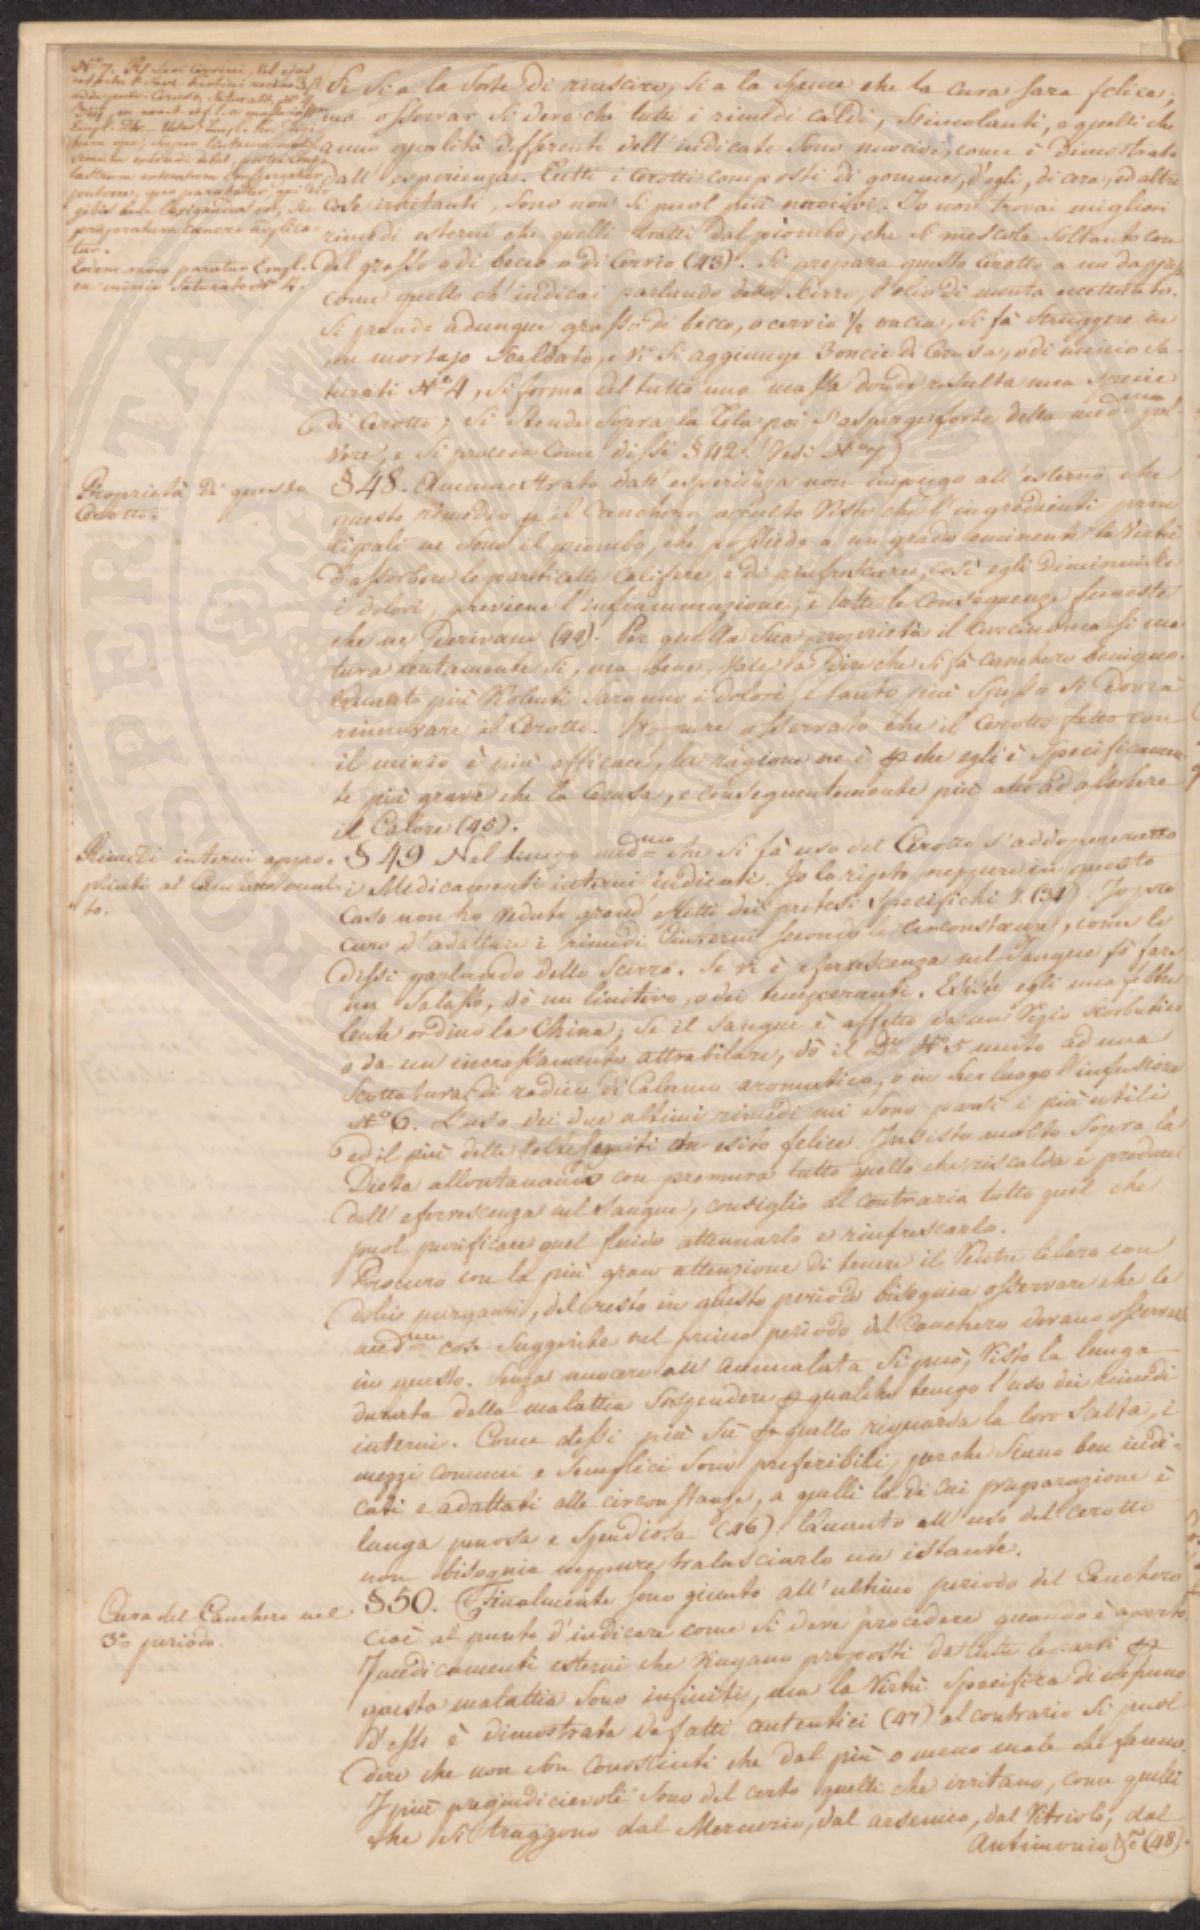 Nº 7. Rp Sevi Cervini, vel ejus
Se si a la sorte di riuscire, si a la speme che la cura sara felice;
ma osservar si deve che tutti i rimedi caldi, stimolanti, e quelli che
anno qualità differente dell' indicate sono nocivi, come è dimostrato
dall' esperienza. Tutti i Cerotti composti di gomme, d'ogli, di cera, ed altre
cose irritanti, sono non si puol più nocivi. Io non trovai migliori
rimedi esterni che quelli tratti dal piombo, che si mescola soltanto con
del grasso o di becco o di Cervio (43). Si prepara questo Cerotto a un dapresso
come quello ch' indicai parlando dello Scirro, l'olio di menta eccettuato.
Si prende adunque grasso di becco, o cervio ½ oncia, si fà struggere in
un mortajo scaldato, e vi si aggiunge 3 oncie di Cerusa, o di minio sa-
turati Nº 4, si forma del tutto una massa donde resulta una specie
di Cerotto; si stende sopra la tela poi s'asperge forte della med.ma pol-
vere, e si procede come dissi § 42. (Vedi Nº 7)
Proprietà di questo
Cerotto.
§ 48. Ammaestrato dall' esperienza non impiego all' esterno che
questo rimedio p il Canchero occulto visto che l'ingredienti prin
cipali ne sono il piombo, che possiede a un grado eminente la virtù
d'assorbire le particelle califere, e di rinfrescare, così egli diminuisce
i dolori, previene l'infiammazione, e tutte le conseguenze funeste
che ne derivano (44). Per quella sua proprietà il Carcinoma si ma
tura lentamente si, ma bene, vale a dire che si fà canchero benigno.
Quanto più violenti saranno i dolori, e tanto più spesso si dovrà
rinnovare il Cerotto. Ho pure osservato che il Cerotto fatto con
il minio è più efficace, la ragione ne è p che egli è specificamen-
te più grave che la Cerusa, e conseguentemente più atto ad assorbire
il Calore (45).
Rimedi interni appro-
priati al Canchero occul-
to.
§ 49 Nel tempo med.mo che si fà uso del Cerotto s'addopereranno
i Medicamenti interni indicati. Io lo ripeto neppure in questo
caso non ho veduto grand' effetti dei pretesi specifichi (34). Io pro
curo d'adattare i rimedi interni secondo le circonstanze, come le
dissi parlando dello Scirro. Se vi è efervescenza nel sangue fò fare
un salasso, dò un linitivo, o dei temperanti. Esiste egli una febbre
lenta ordino la China; se il sangue è affetto da un vizio scorbutico
o da un incrassamento attrabilare, dò il Nº 5 unito ad una
Scottatura di radice di Calamo aromatico, o in suo luogo l'infusione
Nº 6. L'uso dei due ultimi rimedi mi sono parsi i più utili
ed il più delle volte seguiti da esito felice. Insisto molto sopra la
Dieta allontanando con premura tutto quello che riscalda e produce
dell' efervescenza nel sangue, consiglio al contrario tutto quel che
puol purificare quel fluido attenuarlo e rinfrescarlo.
Procuro con la più gran attenzione di tenere il Ventre libero con
dolci purganti, del resto in questo periodo bisogna osservare che le
med.me cose suggerite nel primo periodo del Canchero devano osservarsi
in questo. Senza nuocere all' ammalata si può, visto la lunga
durata della malattia sospendere p qualche tempo l'uso dei rimedi
interni. Come dissi più sù p quello riguarda la loro scelta, i
mezzi comuni e semplici sono preferibili, purche sieno ben indi-
cati e adattati alle circonstanze, a quelli la di cui preparazione è
lunga penosa e spendiosa (46). Quanto all' uso del Cerotto
non bisogna neppure tralasciarlo un istante.
Cura del Canchero nel
3º periodo.
§ 50. Finalmente sono giunto all' ultimo periodo del Canchero
cioè al punto d'indicare come si deve procedere quando è aperto.
I medicamenti esterni che vengano proposti da tutte le parti p
questa malattia sono infiniti, ma la virtù specifica di nessuno
d'essi è dimostrata da fatti autentici (47) al contrario si puol
dire che non son conosciuti che dal più o meno male che fanno.
I più pregiudicievoli sono del certo quelli che irritano, come quelli
che si traggono dal Mercurio, dal arsenico, dal Vitriolo, dal
Antimonio &c (48).